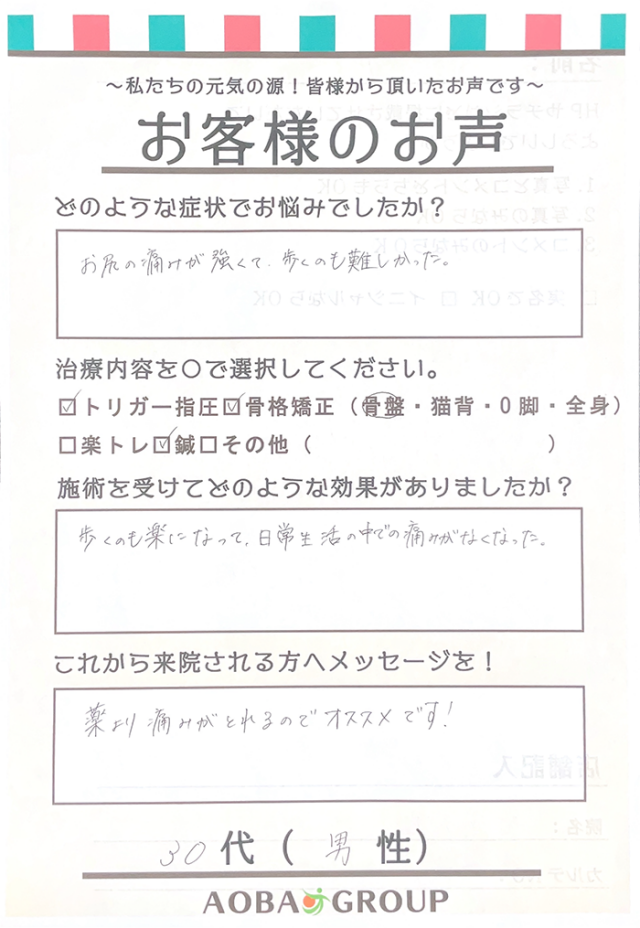 ～私たちの元気の源！皆様から頂いたお声です～
お客様のお声
どのような症状でお悩みでしたか？
お尻の痛みが強くて、歩くのも難しかった。
治療内容を〇で選択してください。
☑トリガー指圧☑骨格矯正（骨盤・猫背・O脚・全身）
☐楽トレ☑鍼☐その他（　　　　　　　　　　）
施術を受けてどのような効果がありましたか？
歩くのも楽になって、日常生活の中での痛みがなくなった。
これから来院される方へメッセージを！
薬より痛みがとれるのでオススメです！
30代（男性）
AOBA GROUP